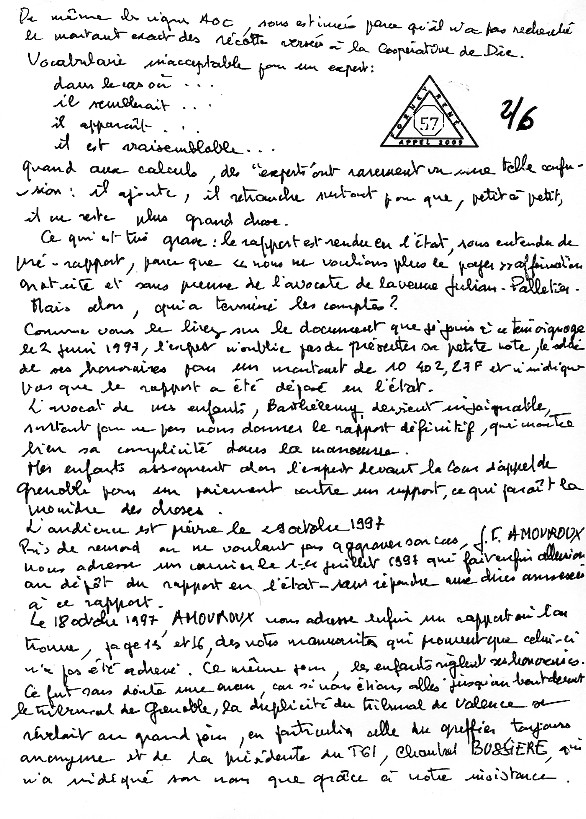 De même les vignes AOC, sous estimées parce qu'il n'a pas recherché
le montant exact des récoltes versées à la Coopérative de Die.
Vocabulaire inacceptable pour un expert :
dans le cas où ...
il semblerait ...
il apparaît ...
il est vraisemblable ...
57
APPEL 2005
2/6
Quand aux calculs, des "experts" ont rarement vu une telle confu-
sion : il ajoute, il retranche surtout pour que, petit à petit,
il ne reste plus grand chose.
Ce qui est très grave : le rapport est rendu en l'état, sous entendu de
pré-rapport, parce que ce nous ne voulions plus le payer => affirmation
gratuite et sans preuve de l'avocate de la veuve Julian-Palletier.
Mais alors, qui a terminé les comptes ?
Comme vous le lirez sur le document que je joins à ce témoignage
le 2 juin 1997, l'expert n'oublie pas de présenter sa petite note, le solde
de ses honoraires pour un montant de 10 402,27F et n'indique
pas que le rapport a été déposé en l'état.
L'avocat de mes enfants, Barthélemy, devient injoignable,
surtout pour ne pas nous donner le rapport définitif, qui montre
bien sa complicité dans la manoeuvre.
Mes enfants assignent alors l'expert devant la Cour d'appel de
Grenoble pour un paiement contre un rapport, ce qui paraît la
moindre des choses.
L'audience est prévue le octobre 1997
Pris de remord ou ne voulant pas aggraver son cas, J.F. AMOUROUX
nous adresse un courrier le juillet 1997 qui fait enfin allusion
au dépôt du rapport en l'état - sans répondre aux dires annexés
à ce rapport.
Le 18 octobre 1997, AMOUROUX nous adresse enfin un rapport où l'on
trouve, page 15 et 16, des notes manuscrites qui prouvent que celui-ci
n'a pas été achevé. Ce même jour, les enfants règlent ses honoraires.
Ce fut sans doute une erreur, car si nous étions allés jusqu'au bout devant
le tribunal de Grenoble, la duplicité du tribunal de Valence se
révélait au grand jour, en particulier celle du greffier toujours
anonyme et de la présidente du TGI, Chantal BUSSIERE, qui
n'a indiqué son nom que grâce à notre insistance.